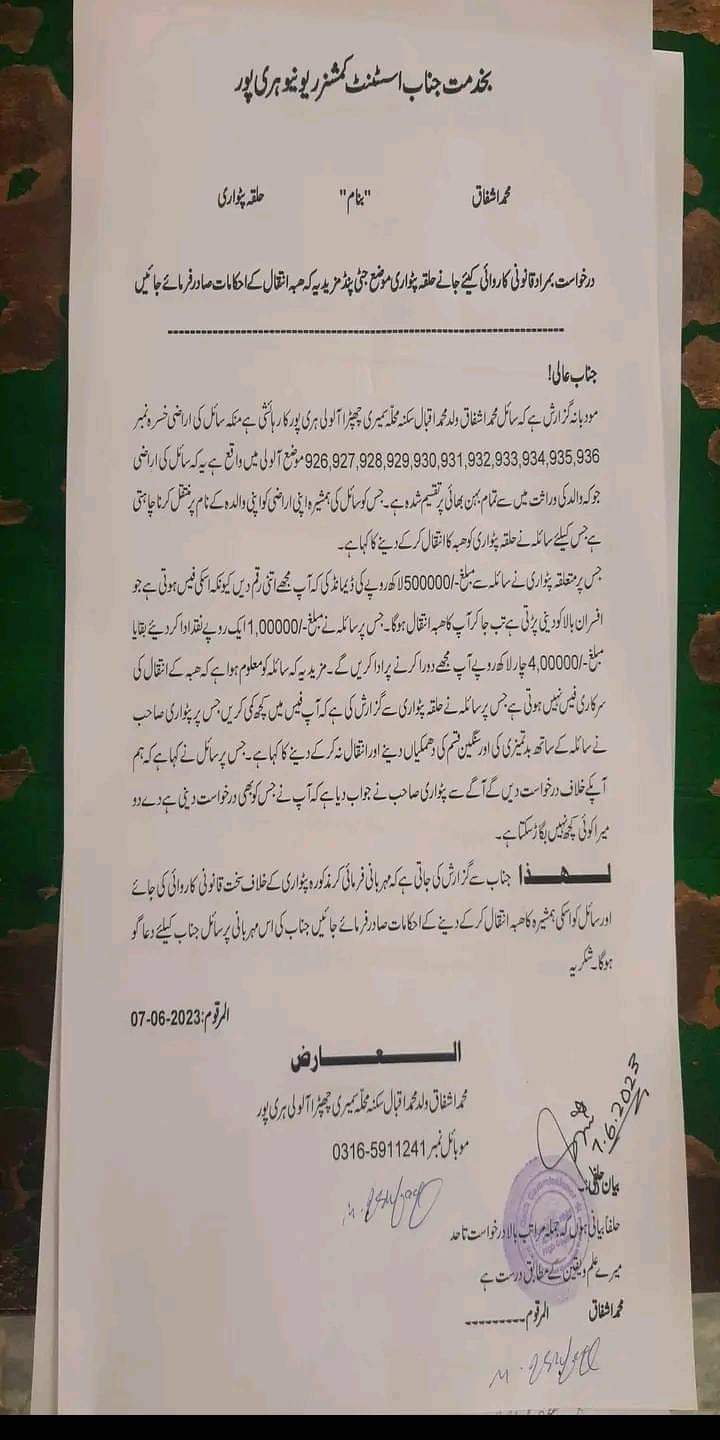 بخدمت جناب اسسٹنٹ کمشنر ریونیو ہری پور
محمد اشفاق "بنام" حلقہ پٹواری
درخواست بمراد قانونی کاروائی کیئے جانے حلقہ پٹواری موضع جٹی پنڈ مزید یہ کہ ھبہ انتقال کے احکامات صادر فرمائے جائیں
جناب عالی!
مودبانہ گزارش ہے کہ سائل محمد اشفاق ولد محمد اقبال سکنہ محلہ سمیری چھپڑا آلولی ہری پور کا رہائشی ہے منکہ سائل کی اراضی خسرہ نمبر
926,927,928,929,930,931,932,933,934,935,936 موضع آلولی میں واقع ہے یہ کہ سائل کی اراضی
جو کہ والد کی وراثت میں سے تمام بہن بھائی پر تقسیم شدہ ہے۔ جس کو سائل کی ہمشیرہ اپنی اراضی کو اپنی والدہ کے نام پر منتقل کرنا چاہتی
ہے جس کیلئے سائلہ نے حلقہ پٹواری کو ھبہ کا انتقال کر کے دینے کا کہا ہے۔
جس پر متعلقہ پٹواری نے سائلہ سے مبلغ-/500000 لاکھ روپے کی ڈیمانڈ کی کہ آپ مجھے اتنی رقم دیں کیونکہ اسکی فیس ہوتی ہے جو
افسران بالا کو دینی پڑتی ہے تب جا کر آپ کا ھبہ انتقال ہوگا۔ جس پر سائلہ نے مبلغ-/1,00000 ایک روپے نقد ادا کر دیئے بقایا
مبلغ-/4,00000 چار لاکھ روپے آپ مجھے دورا کرنے پر ادا کریں گے۔ مزید یہ کہ سائلہ کو معلوم ہوا ہے کہ ھبہ کے انتقال کی
سرکاری فیس نہیں ہوتی ہے جس پر سائلہ نے حلقہ پٹواری سے گزارش کی ہے کہ آپ فیس میں کچھ کمی کریں جس پر پٹواری صاحب
نے سائلہ کے ساتھ بدتمیزی کی اور سنگین قسم کی دھمکیاں دینے اور انتقال نہ کر کے دینے کا کہا ہے۔ جس پر سائل نے کہا ہے کہ ہم
آپکے خلاف درخواست دیں گے آگے سے پٹواری صاحب نے جواب دیا ہے کہ آپ نے جس کو بھی درخواست دینی ہے دے دو
میرا کوئی کچھ نہیں بگاڑ سکتا ہے۔
لہذا جناب سے گزارش کی جاتی ہے کہ مہربانی فرمائی کر مذکورہ پٹواری کے خلاف سخت قانونی کاروائی کی جائے
اور سائل کو اسکی ہمشیرہ کا ھبہ انتقال کر کے دینے کے احکامات صادر فرمائے جائیں جناب کی اس مہربانی پر سائل جناب کیلئے دعا گو
ہوگا۔ شکریہ
المرقوم:07-06-2023
العارض
محمد اشفاق ولد محمد اقبال سکنہ محلہ سمیری چھپڑا آلولی ہری پور
موبائل نمبر 0316-5911241
7.6.2023
بیان حلفی:۔
حلفاً بیانی ہوں کہ جملہ مراتب بالا درخواست تا حد
میرے علم و یقین کے مطابق درست ہے
محمد اشفاق المرقوم---------